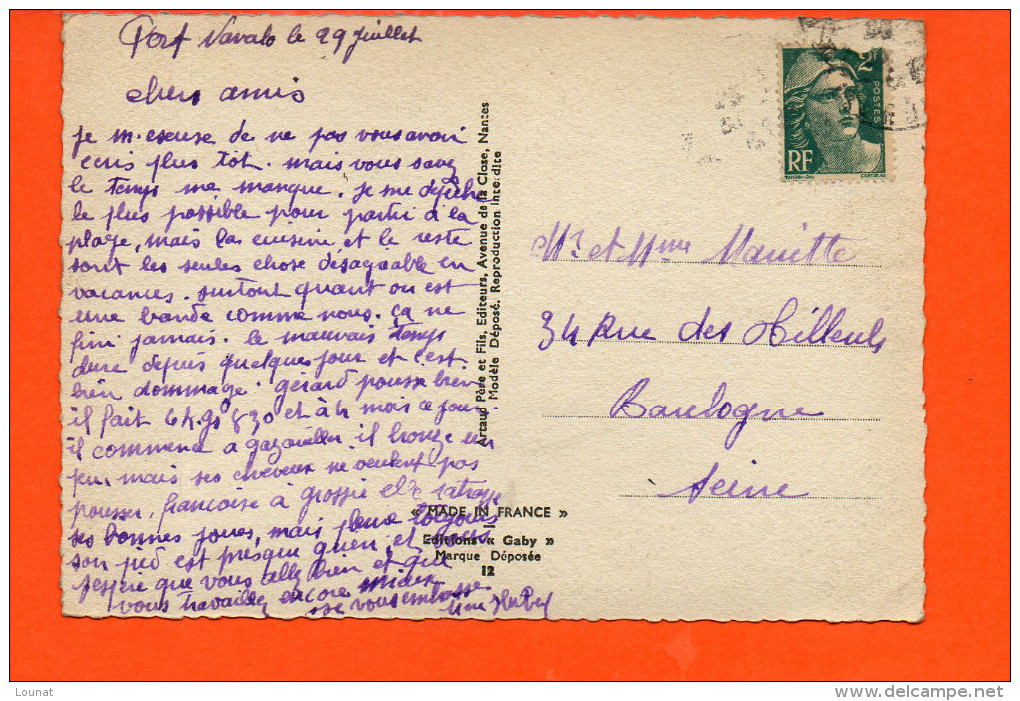 Port Navalo le 29 juillet
chers amis
je m'escuse de ne pas vous avoir
ecris plus tôt. mais vous savez
le temps me manque. je me depêche
le plus possible pour partir à la
plage, mais la cuisine et le reste
sont les seules chose desagreable en
vacances. surtout quant on est
une bande comme nous. ça ne
fini jamais. le mauvais temps
dure depuis quelques jour et c'est
bien dommage. gérard pousse bien
il fait 6 k. 830 et à 4 mois ce jour.
il commence a gazouiller. il bronze un
peu, mais ses cheveux ne veulent pas
pousser. francoise à grossie elle ratrappe
ses bonnes joues, mais pleure toujours
son pied est presque guéri, et
j'espère que vous allez bien et que
vous travaillez encore mieux
je vous embrasse
Mme
Artaud Père et Fils, Editeurs, Avenue de la Close, Nantes
Modèle Déposé. Reproduction interdite
« MADE IN FRANCE »
Editions « Gaby »
Marque Déposée
12
2F
POSTES
RF
Mr et Mme Mariette
34 Rue des Tilleuls
Boulogne
Seine
Lounat
www.delcampe.net